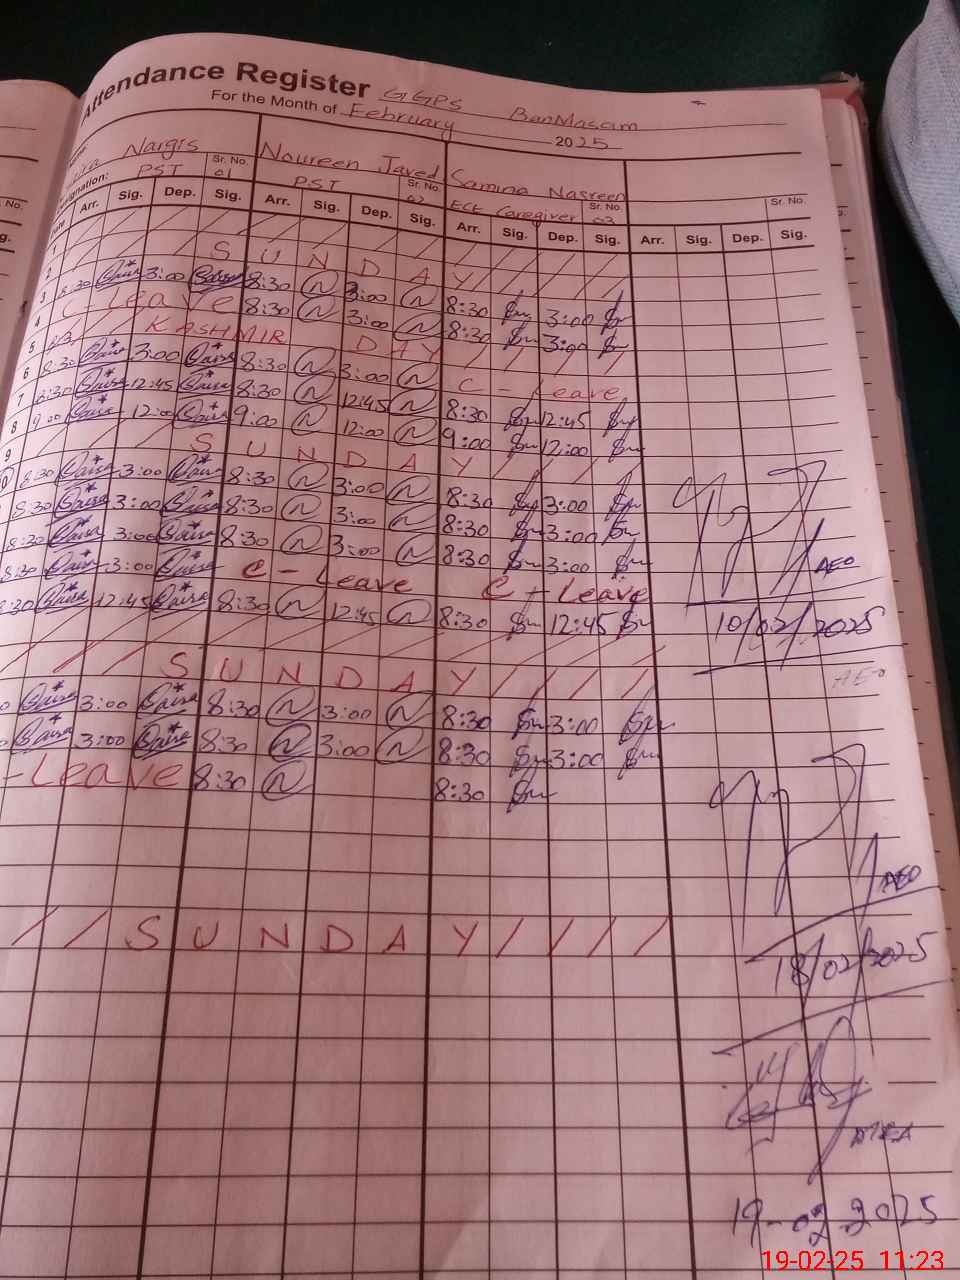 Attendance Register GGPS BanMasam
For the Month of February 2025
Nargis Noureen Javed Samina Nasreen
PST Sr. No. 01 PST Sr. No. 02 ECE Caregiver Sr. No. 03 Sr. No.
Arr. Sig. Dep. Sig. Arr. Sig. Dep. Sig. Arr. Sig. Dep. Sig. Arr. Sig. Dep. Sig.
1
2 S U N D A Y
3 8:30 Qaisa 3:00 Qaisa 8:30 N 3:00 N 8:30 3:00
4 C-Leave 8:30 N 3:00 N 8:30 3:00
5 KASHMIR DAY
6 8:30 Qaisa 3:00 Qaisa 8:30 N 3:00 N C Leave
7 8:30 Qaisa 12:45 Qaisa 8:30 N 12:45 N 8:30 12:45
8 9:00 Qaisa 12:00 Qaisa 9:00 N 12:00 N 9:00 12:00
9 S U N D A Y
8:30 Qaisa 3:00 Qaisa 8:30 N 3:00 N 8:30 3:00
8:30 Qaisa 3:00 Qaisa 8:30 N 3:00 N 8:30 3:00
8:30 Qaisa 3:00 Qaisa 8:30 N 3:00 N 8:30 3:00
8:30 Qaisa 3:00 Qaisa C-Leave C-Leave
8:30 Qaisa 12:45 Qaisa 8:30 N 12:45 N 8:30 12:45
AEO
10/02/2025
S U N D A Y
AEO
Qaisa 3:00 Qaisa 8:30 N 3:00 N 8:30 3:00
Qaisa 3:00 Qaisa 8:30 N 3:00 N 8:30 3:00
-Leave 8:30 N 8:30
AEO
S U N D A Y
18/02/2025
19-02-2025
19-02-25 11:23